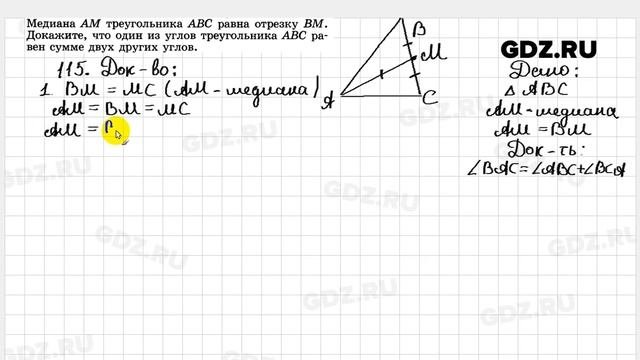 Медиана AM треугольника ABC равна отрезку BM.
Докажите, что один из углов треугольника ABC ра-
вен сумме двух других углов.
115. Док-во:
1 BM = MC (AM - медиана)
AM = BM = MC
AM =
B
M
A
C
GDZ.RU
Дано:
△ ABC
AM - медиана
AM = BM
Док-ть:
∠BAC = ∠ABC + ∠BCA